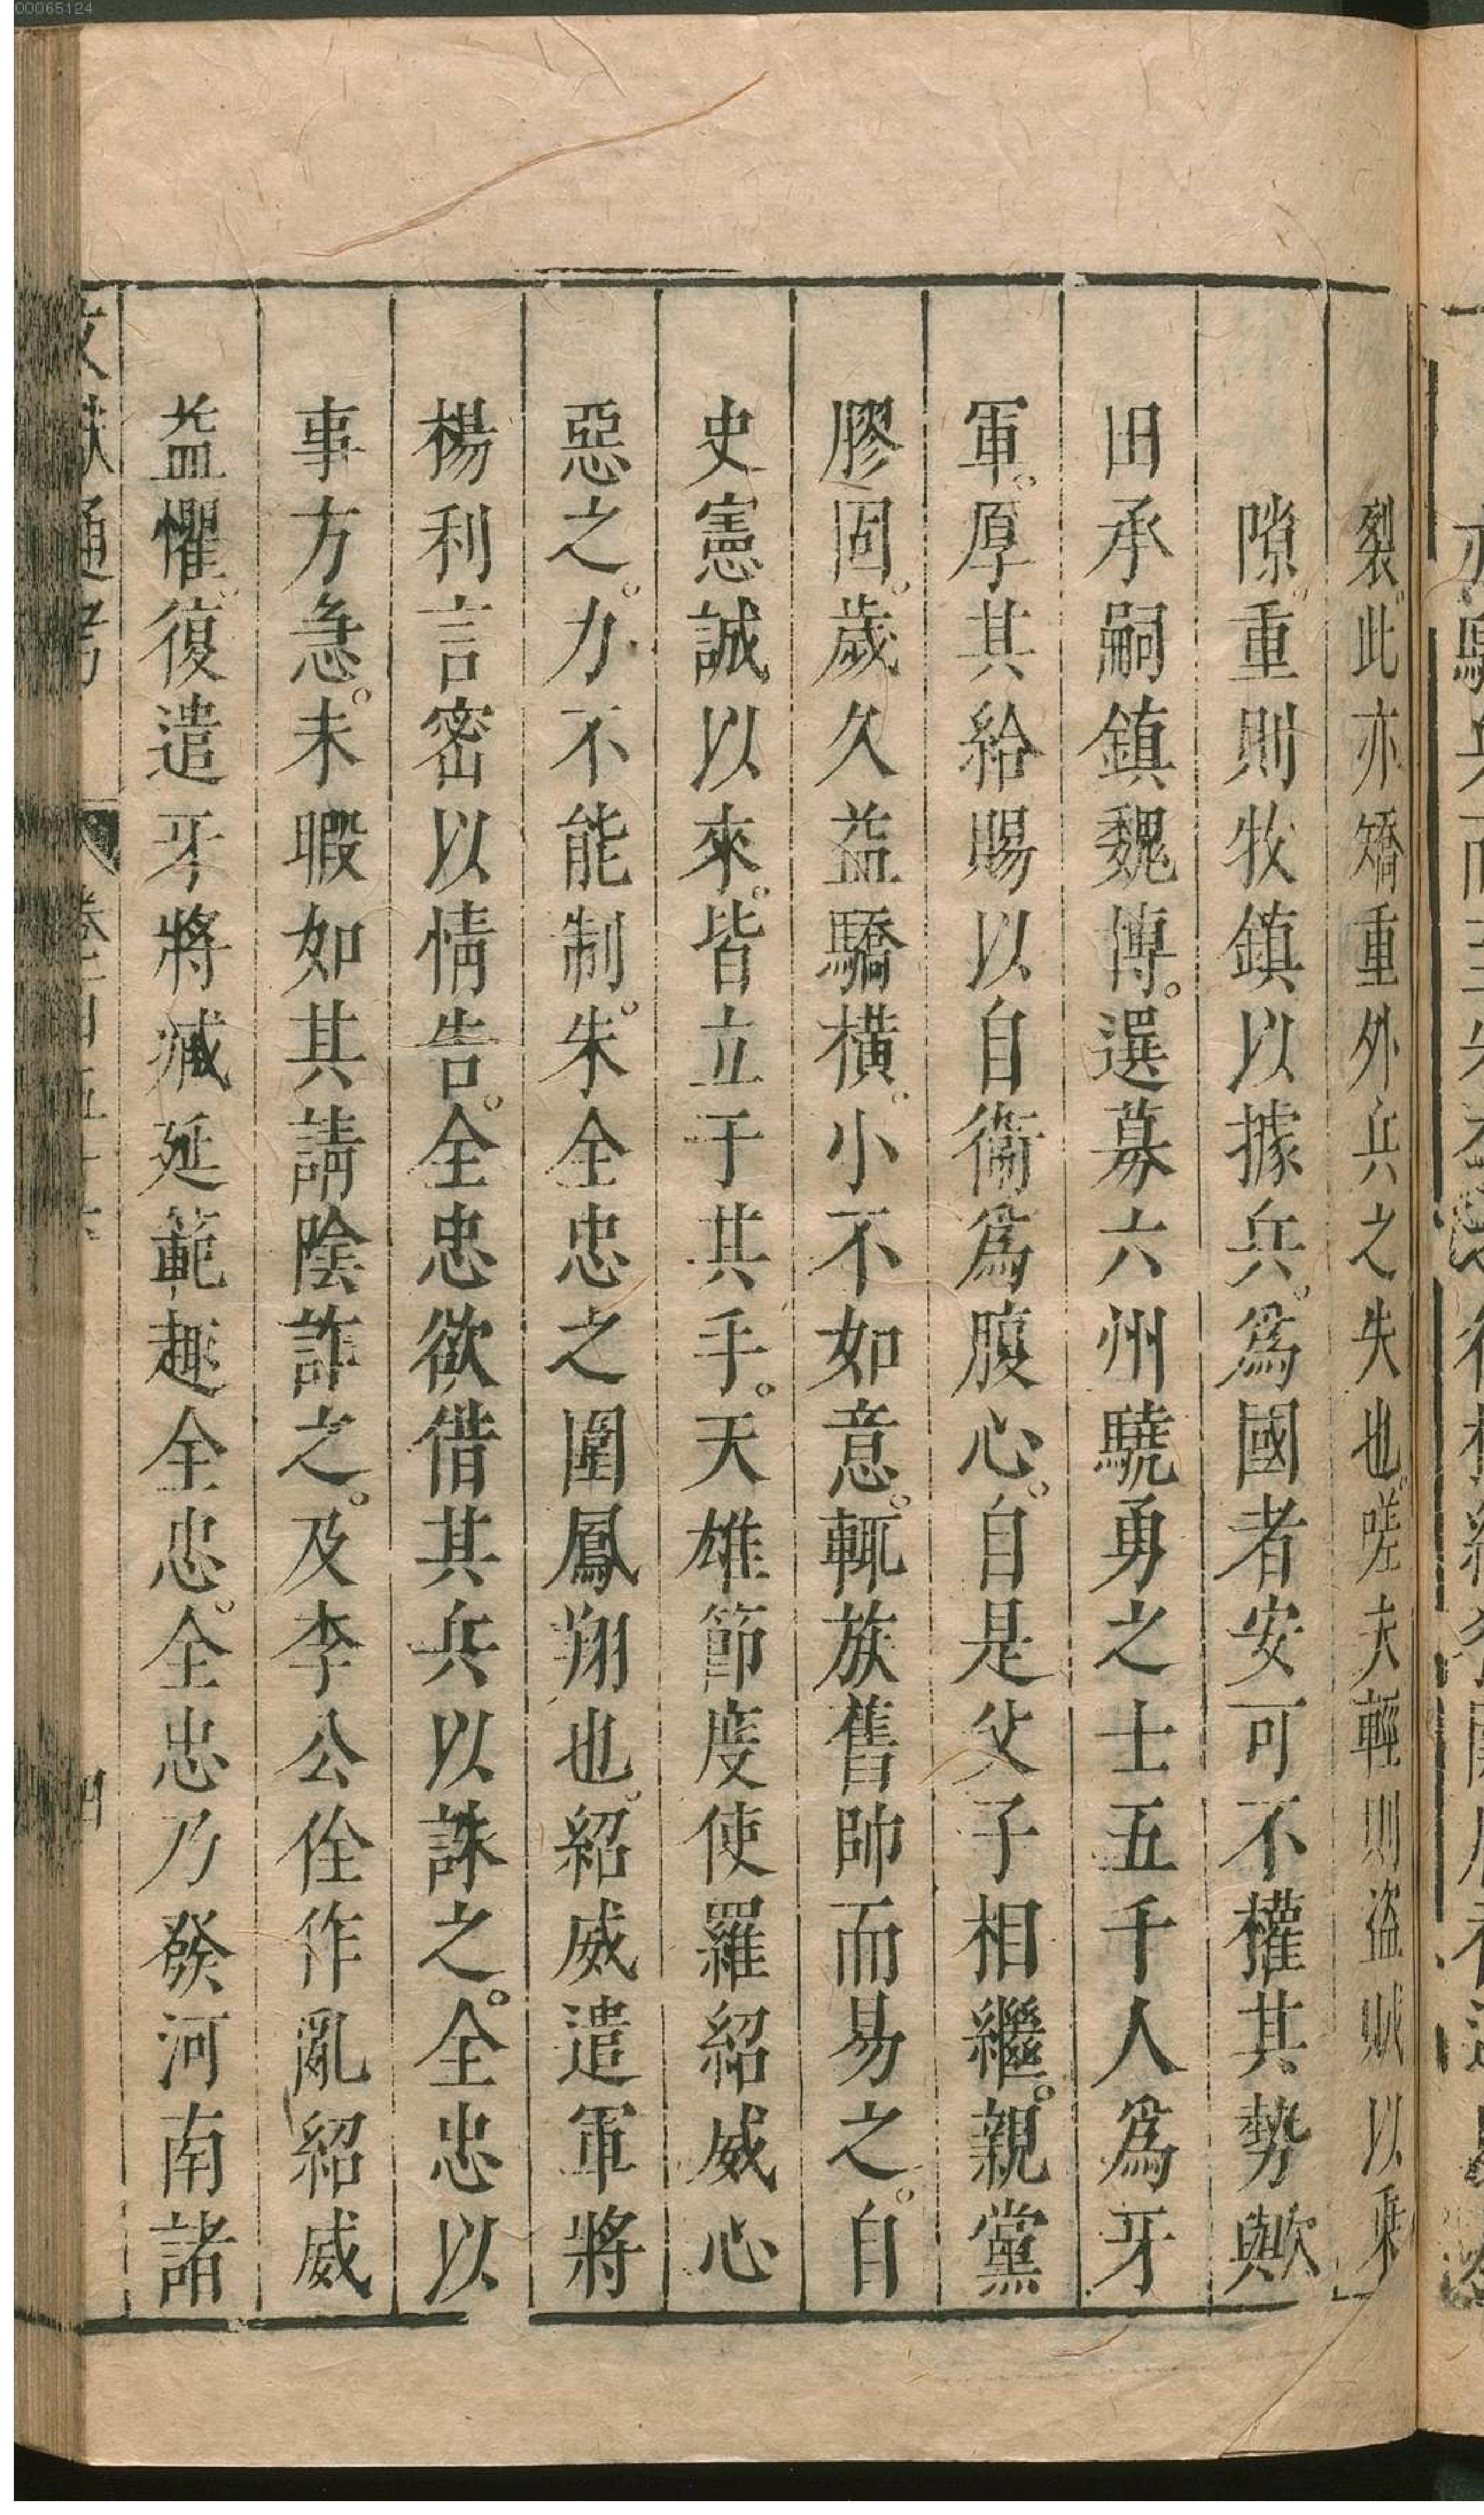 00065124
裂此亦矯重外兵之失也。嗟夫輕則盜賊以乘
隙重則牧鎮以據兵。爲國者安可不權其勢歟
田承嗣鎮魏博。選募六州驍勇之士五千人爲牙
軍。厚其給賜以自衞爲腹心。自是父子相繼。親黨
膠固。歲久益驕橫。小不如意。輒族舊帥而易之。自
史憲誠以來。皆立于其手。天雄節度使羅紹威心
惡之。力不能制。朱全忠之圍鳳翔也。紹威遣軍將
楊利言密以情告。全忠欲借其兵以誅之。全忠以
事方急。未暇如其請陰許之。及李公佺作亂紹威
益懼。復遣牙將臧延範趣全忠。全忠乃發河南諸
文獻通考